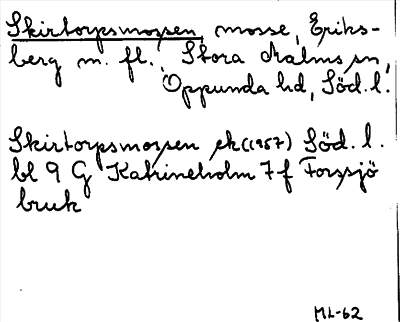 Skirtorpsmossen, mosse, Eriks-
berg m. fl., Stora Malms sn,
Oppunda hd, Söd. l.
Skirtorpsmossen ek (1957) Söd. l.
bl 9 G Katrineholm 7 f Forssjö
bruk
ML-62